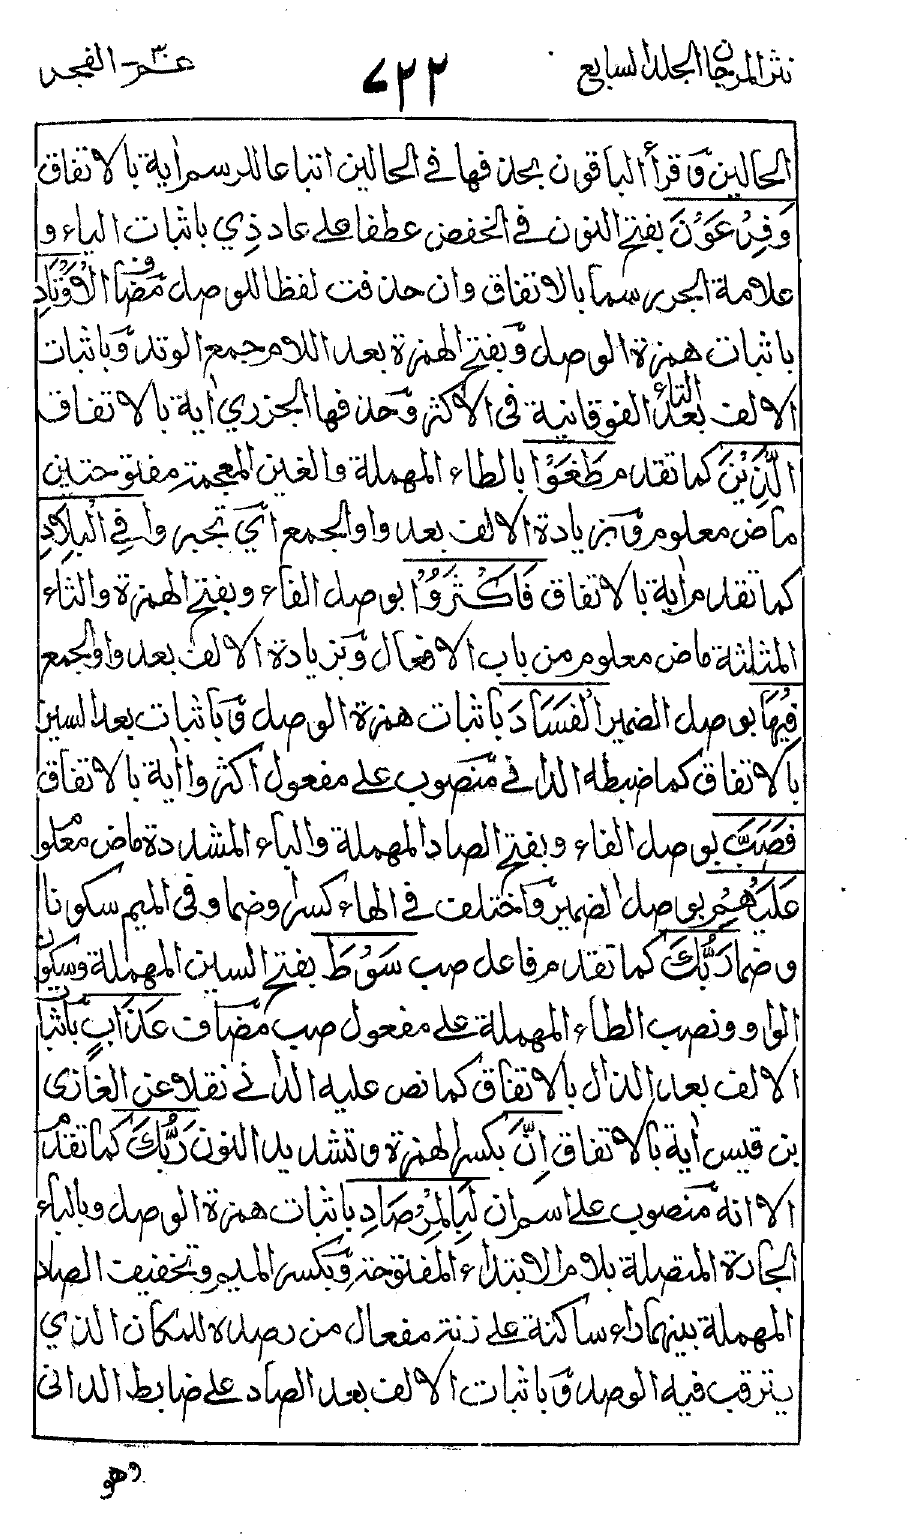 نثر المرجان الجلد السابع
٧٢٢
عم الفجر
الحالين وقرأ الباقون بحذفها في الحالين اتباعا للرسم أية بالاتفاق
وَفِرْعَوْنَ بفتح النون في الخفض عطفا على عاد ذِي باثبات الياء و
علامة الجر رسما بالاتفاق وان حذفت لفظا للوصل مضاف الْأَوْتَادِ
باثبات همزة الوصل وبفتح الهمزة بعد اللام جمع الوتد وباثبات
الالف بعد التاء الفوقانية في الاكثر وحذفها الجزري أية بالاتفاق
الَّذِيْنَ كما تقدم طَغَوْا بالطاء المهملة والغين المعجمة مفتوحتين
ماض معلوم وبزيادة الالف بعد واو الجمع أي تجبروا فِي الْبِلَادِ
كما تقدم أية بالاتفاق فَأَكْثَرُوْا بوصل الفاء وبفتح الهمزة والثاء
المثلثة ماض معلوم من باب الافعال وبزيادة الالف بعد واو الجمع
فِيْهَا بوصل الضمير الْفَسَادَ باثبات همزة الوصل وباثبات بعد السين
بالاتفاق كما ضبطه الداني منصوب على مفعول اكثروا أية بالاتفاق
فَصَبَّ بوصل الفاء وبفتح الصاد المهملة والباء المشددة ماض معلوم
عَلَيْهِمْ بوصل الضمير واختلف في الهاء كسرا وضما وفي الميم سكونا
وضما رَبُّكَ كما تقدم فاعل صب سَوْطَ بفتح السين المهملة وسكون
الواو ونصب الطاء المهملة على مفعول صب مضاف عَذَابٍ باثبات
الالف بعد الذال بالاتفاق كما نص عليه الداني نقلا عن الغازى
بن قيس أية بالاتفاق اِنَّ بكسر الهمزة وتشديد النون رَبَّكَ كما تقدم
الا انه منصوب على اسم ان لَبِالْمِرْصَادِ باثبات همزة الوصل وبالباء
الجارة المتصلة بلام الابتداء المفتوحة وبكسر الميم وتخفيف الصاد
المهملة بينهما راء ساكنة على زنة مفعال من رصده للمكان الذي
يترقب فيه الوصد وباثبات الالف بعد الصاد على ضابط الداني
وهو